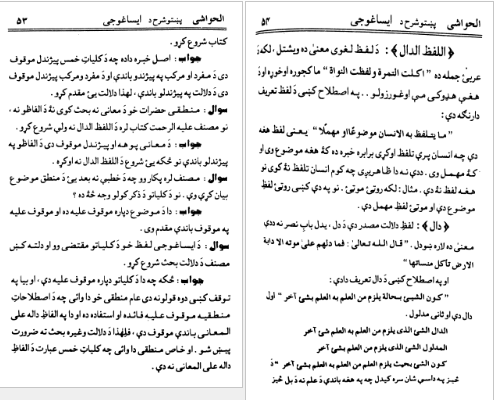 الحواشي پښتو شرح د ايساغوجي ۵۳
کتاب شروع کړو.
جواب : اصل خبره داده چه د کلياتِ خمس پيژندل موقوف
دی د مفرد او مرکب په پيژندلو باندې او د مفرد ومرکب پيژندل موقوف
دی د دلالت په پيژندلو باندې ، لهٰذا دلالت يې مقدم کړو.
سوال : منطقي حضرات خو د معانی نه بحث کوی نهٔ د الفاظو نه ،
نو مصنف عليه الرحمت کتاب لره د اللفظ الدال نه ولې شروع کړو.
جواب : د معانی پوهه او پيژندل موقوف دی د الفاظو په
پيژندلو باندې نو ځکه يې شروع د اللفظ الدال نه اوکړه .
سوال : مصنف لره پکار وو چه د خطبې نه بعد يې د منطق موضوع
بيان کړې وې ، نو د کلياتو د ذکر کولو وجه څهٔ ده ؟
جواب : دا د موضوع دپاره موقوف عليه ده او موقوف عليه
په موقوف باندې مقدم وی.
سوال : د ايساغوجي لفظ خود کلياتو مقتضی وو او دلته کښ
مصنف د دلالت بحث شروع کړو .
جواب : ځکه چه دا د کلياتو دپاره موقوف عليه دې ، او بيا په
توقف کښې دوه قولونه دی عام منطقی خو دا وائی چه د اصطلاحاتِ
منطقيه موقوف عليه فائده او استفاده ده او دا په الفاظ داله علی
المعانی باندې موقوف دی ، فلِهٰذا د دلالت وغيره بحث ته ضرورت
پيښ شو . او خاص منطقی دا وائی چه کلياتِ خمس عبارت د الفاظ
داله علی المعانی نه دې .
الحواشي پښتو شرح د ايساغوجي ۵۴
﴿اللفظ الدال﴾ : د لفظ لغوی معنیٰ ده ويشتل ، لکه په
عربئ جمله ده " اکلت التمرة ولفظت النواة " ما کجوره اوخوړه او د
هغې هډوکی می اوغورزولو .. په اصطلاح کښی د لفظ تعريف
دارنګه دې :
" ما يتلفظ به الانسان موضوعًا او مهملًا " يعنی لفظ هغه
دې چه انسان پرې تلفظ اوکړی برابره خبره ده کهٔ هغه موضوع وی او
کهٔ مهمل وی . ددې نه دا ظاهريږی چه کوم انسان تلفظ نهٔ کوی نو
هغه لفظ نهٔ دې . مثال : لکه روټی موټی . نو په دې کښی روټی لفظِ
موضوع دې او موټی لفظِ مهمل دې .
﴿دال﴾ : لفظ دلالت مصدر دې د دل ، يدل باب نصر نه ددې
معنیٰ ده لاره ښودل . " قال الله تعالیٰ : فما دلهم علیٰ موته الا دابة
الارض تأکل منسأتها "
او په اصطلاح کښی د دال تعريف دادې :
" کون الشيئ بحالة يلزم من العلم به العلم بشئ آخر " اول
دال دې او ثانی مدلول .
الدال الشئ الذی يلزم من العلم به العلم بشئ آخر
المدلول الشئ الذی يلزم من العلم بشئ آخر
کون الشئ بحيث يلزم من العلم به العلم بشئ آخر " دَ
تميز په داسې شان سره کيدل چه په هغه باندې د علم نه د بل څيز